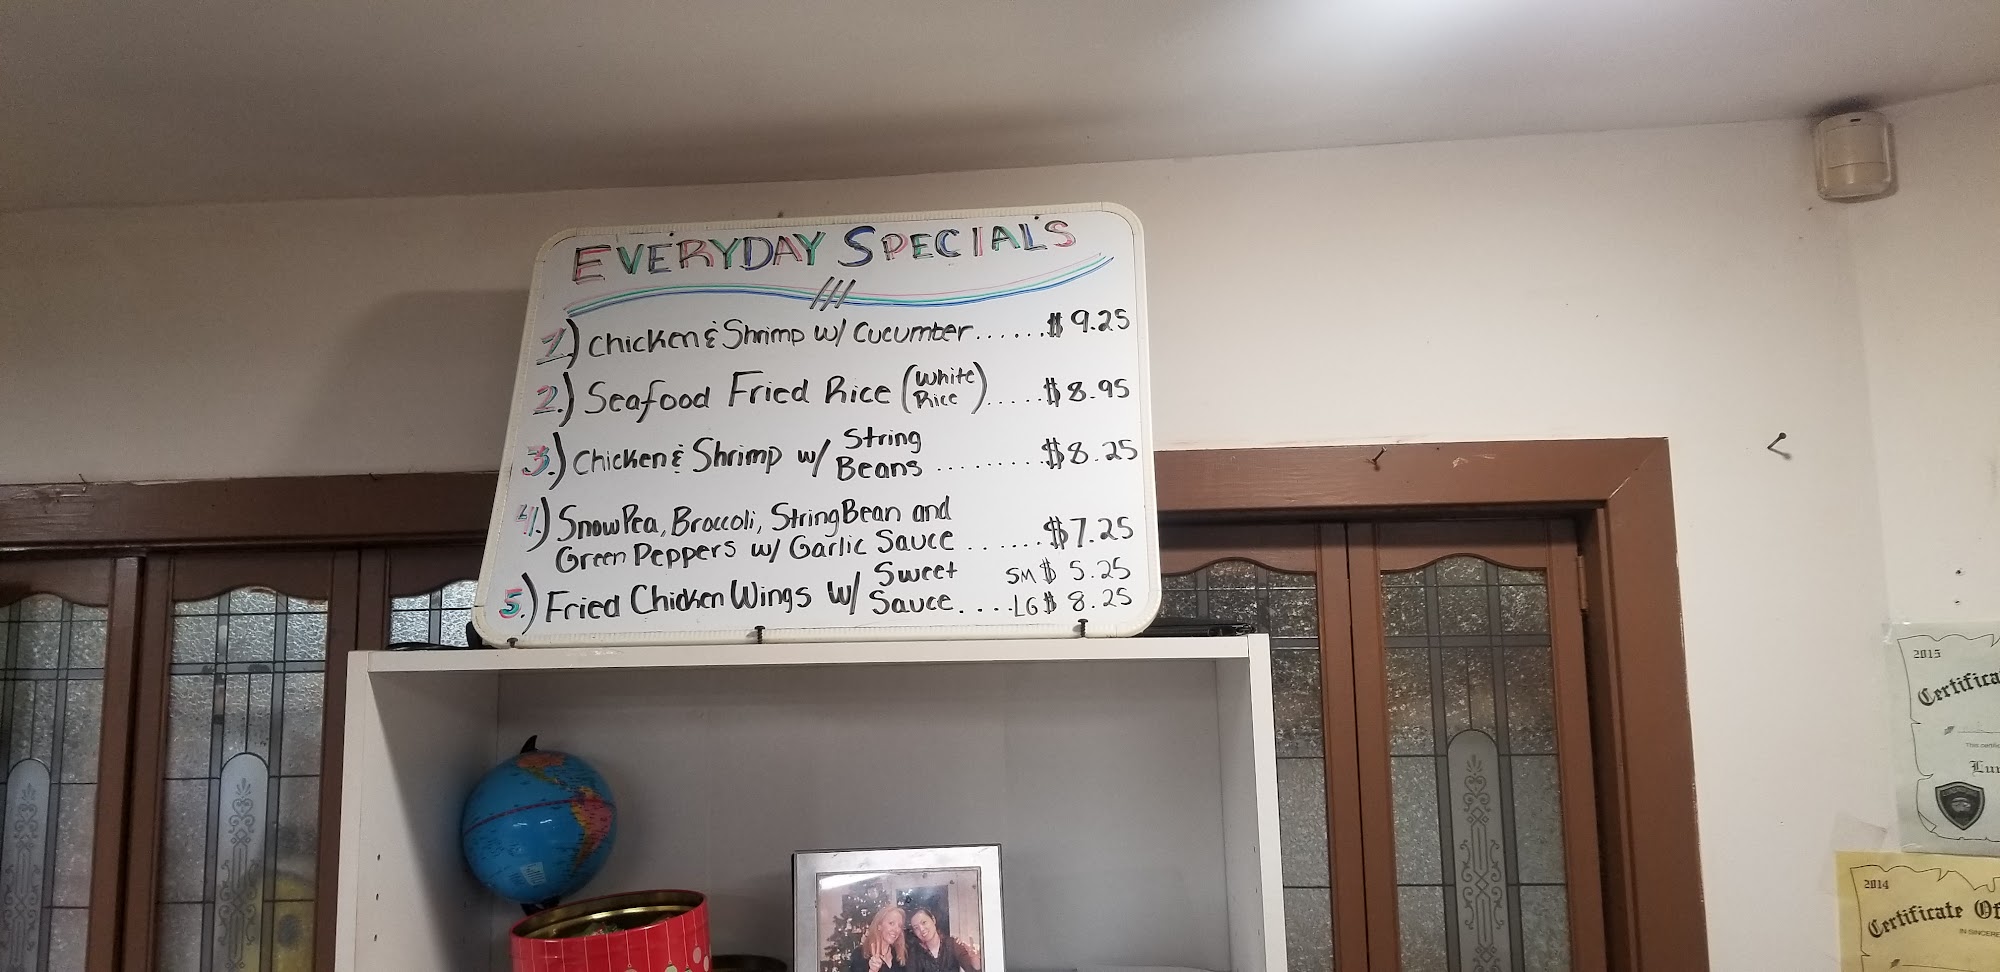 EVERYDAY SPECIALS
1.) Chicken & Shrimp w/ Cucumber......$ 9.25
2.) Seafood Fried Rice (White Rice).....$ 8.95
3.) Chicken & Shrimp w/ String Beans.........$8.25
4.) Snow Pea, Broccoli, String Bean and
Green Peppers w/ Garlic Sauce.......$7.25
5.) Fried Chicken Wings w/ Sweet Sauce....SM $ 5.25
LG $ 8.25
2015
2014
Certificate Of